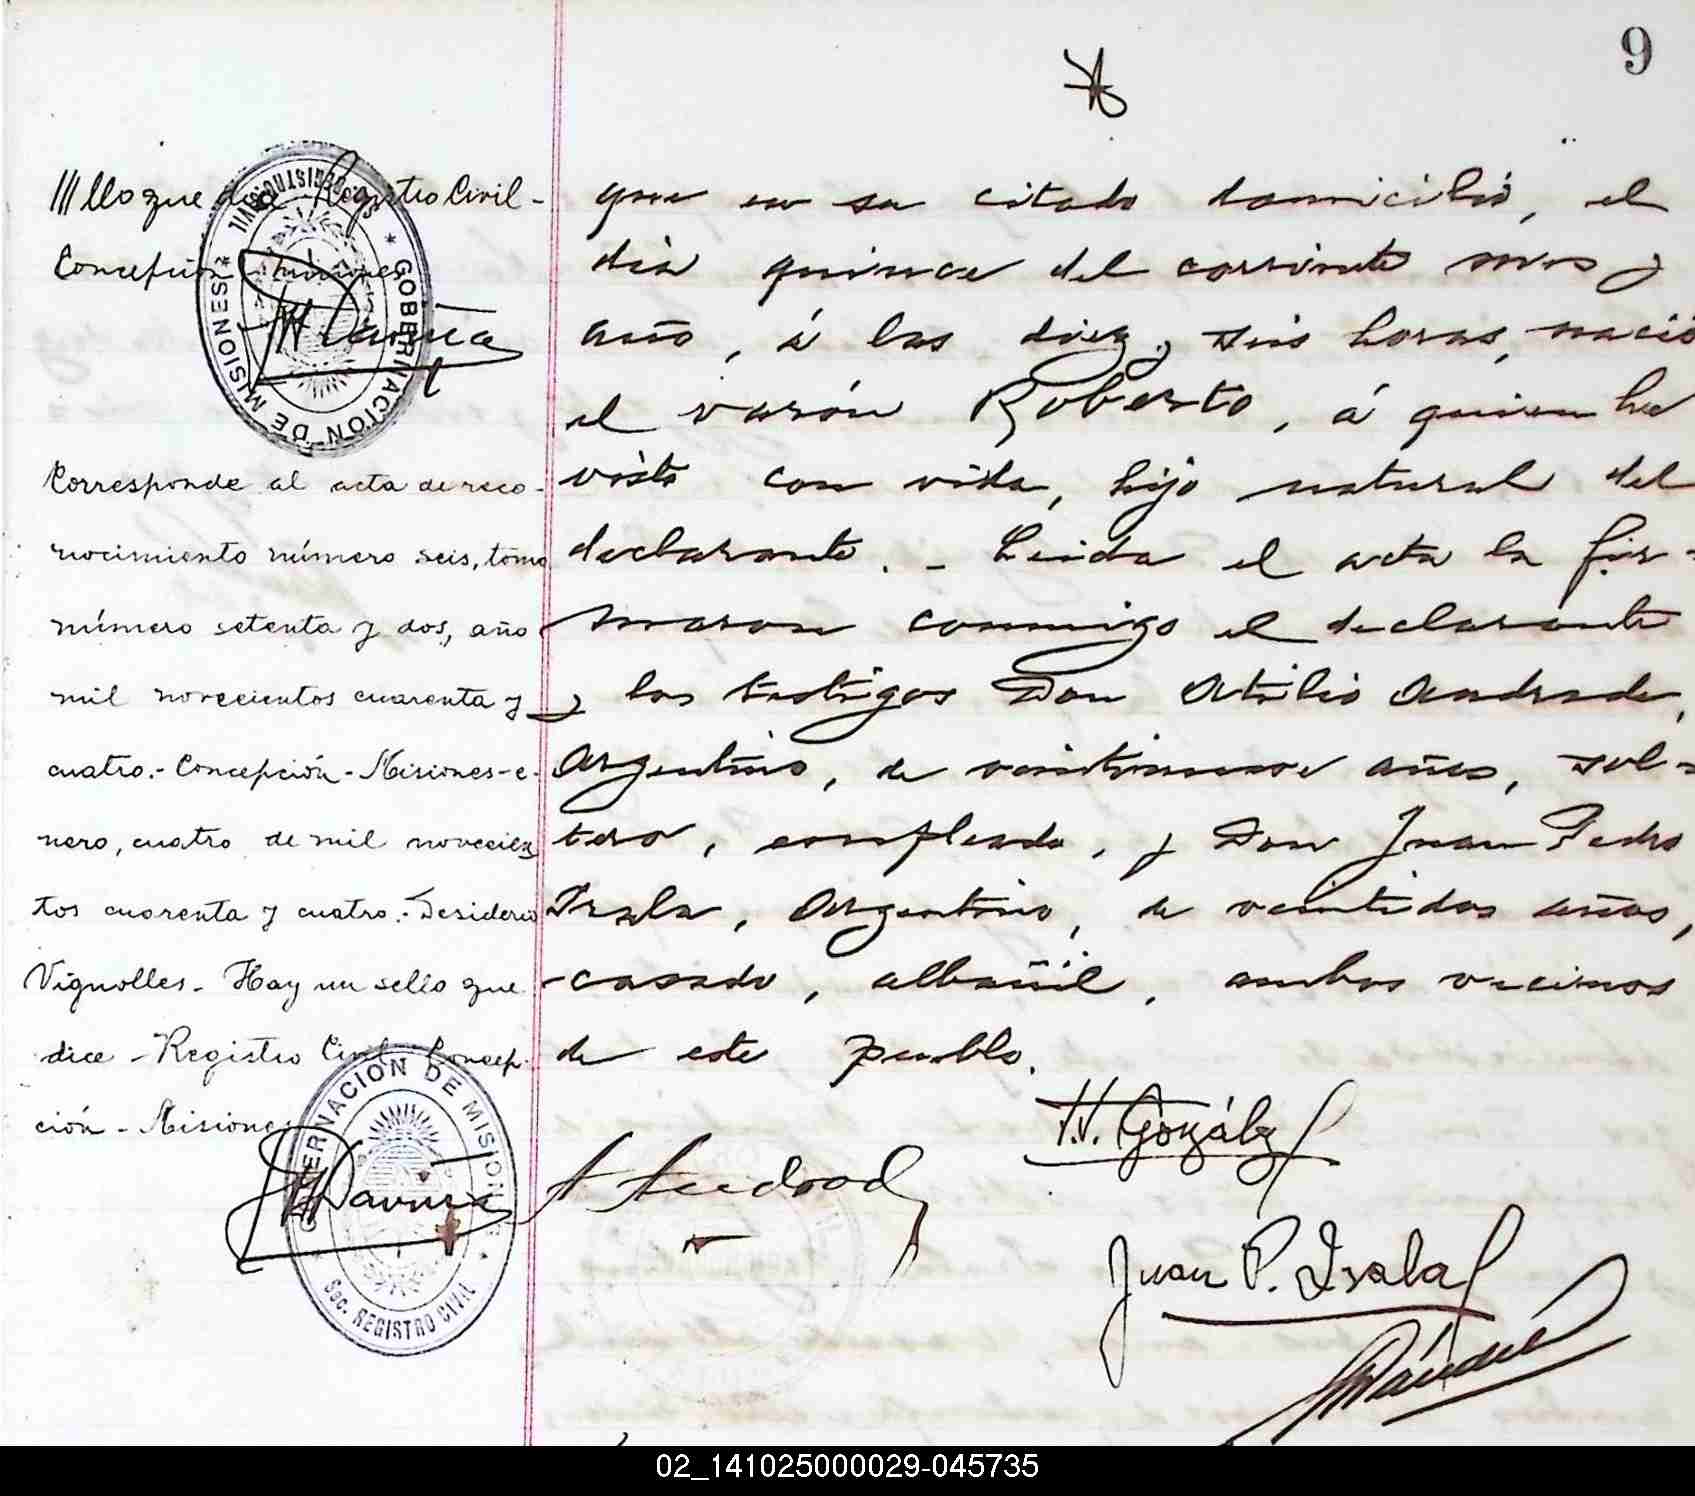 9
///llo que dice Registro Civil -
Concepción Misiones
GOBERNACION DE MISIONES
SEC. REGISTRO CIVIL
Corresponde al acta de reco-
nocimiento número seis, tomo
número setenta y dos, año
mil novecientos cuarenta y
cuatro.- Concepción - Misiones - e-
nero, cuatro de mil novecien
tos cuarenta y cuatro.- Desiderio
Vignolles - Hay un sello que
dice - Registro Civil Concep-
ción - Misiones
GOBERNACION DE MISIONES
Sec. REGISTRO CIVIL
que en su citado domicilió, el
día quince del corriente mes y
año, á las diez y seis horas, nació
el varón Roberto, á quien he
visto con vida, hijo natural del
declarante. - Leida el acta la fir-
maron conmigo el declarante
y los testigos Don Atilio Andrade,
Argentino, de veintinueve años, sol-
tero, empleado, y Don Juan Pedro
Isala, Argentino, de veintidos años,
casado, albañil, ambos vecinos
de este pueblo.
H. González
A Andrade
Juan P. Isala
02_141025000029-045735